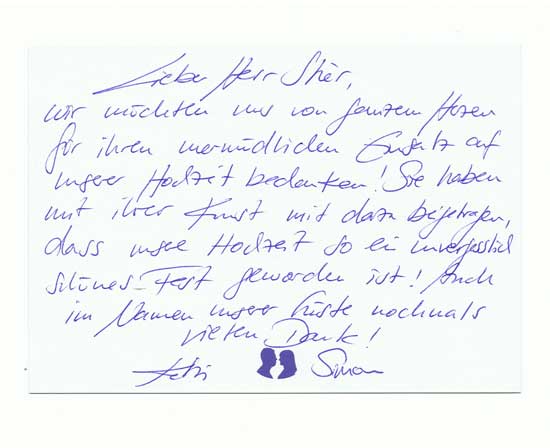 Lieber Herr Stier,
wir möchten uns von ganzem Herzen
für ihren unermüdlichen Einsatz auf
unserer Hochzeit bedanken! Sie haben
mit ihrer Kunst mit dazu beigetragen,
dass unsere Hochzeit so ein unvergesslich
schönes Fest geworden ist! Auch
im Namen unserer Gäste nochmals
vielen Dank!
Simon